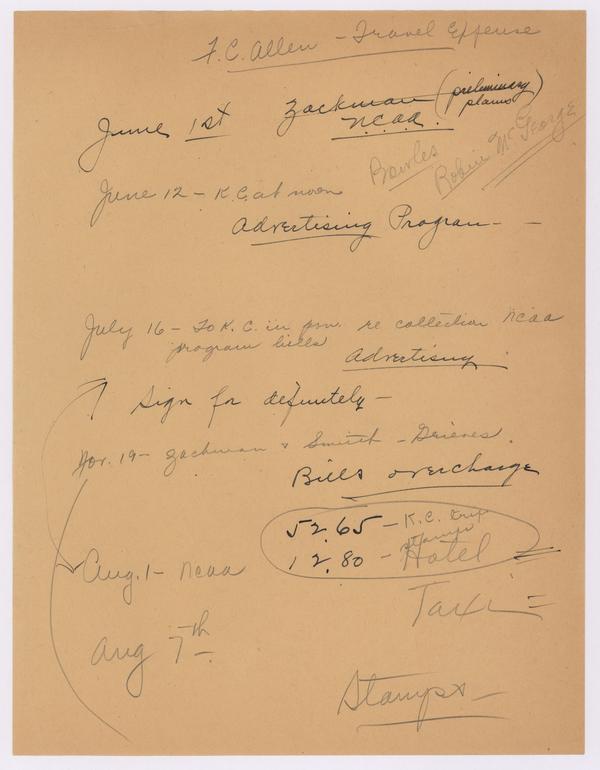 F.C. Allen - Travel Expense
June 1st Zackman (preliminary plans)
N.C.a.a.
Bowles
Robin McGeorge
June 12 - K.C. at noon
Advertising Program -
July 16 - To K.C. in re collection ncaa
program bills
Advertising
Sign for definitely -
Nov. 19 - Zackman & Smith - Grieves.
Bills overcharge
52.65 - K.C. trip
stamps
12.80 - Hotel
Aug. 1 - ncaa
Taxi =
Aug 7th -
Stamps -